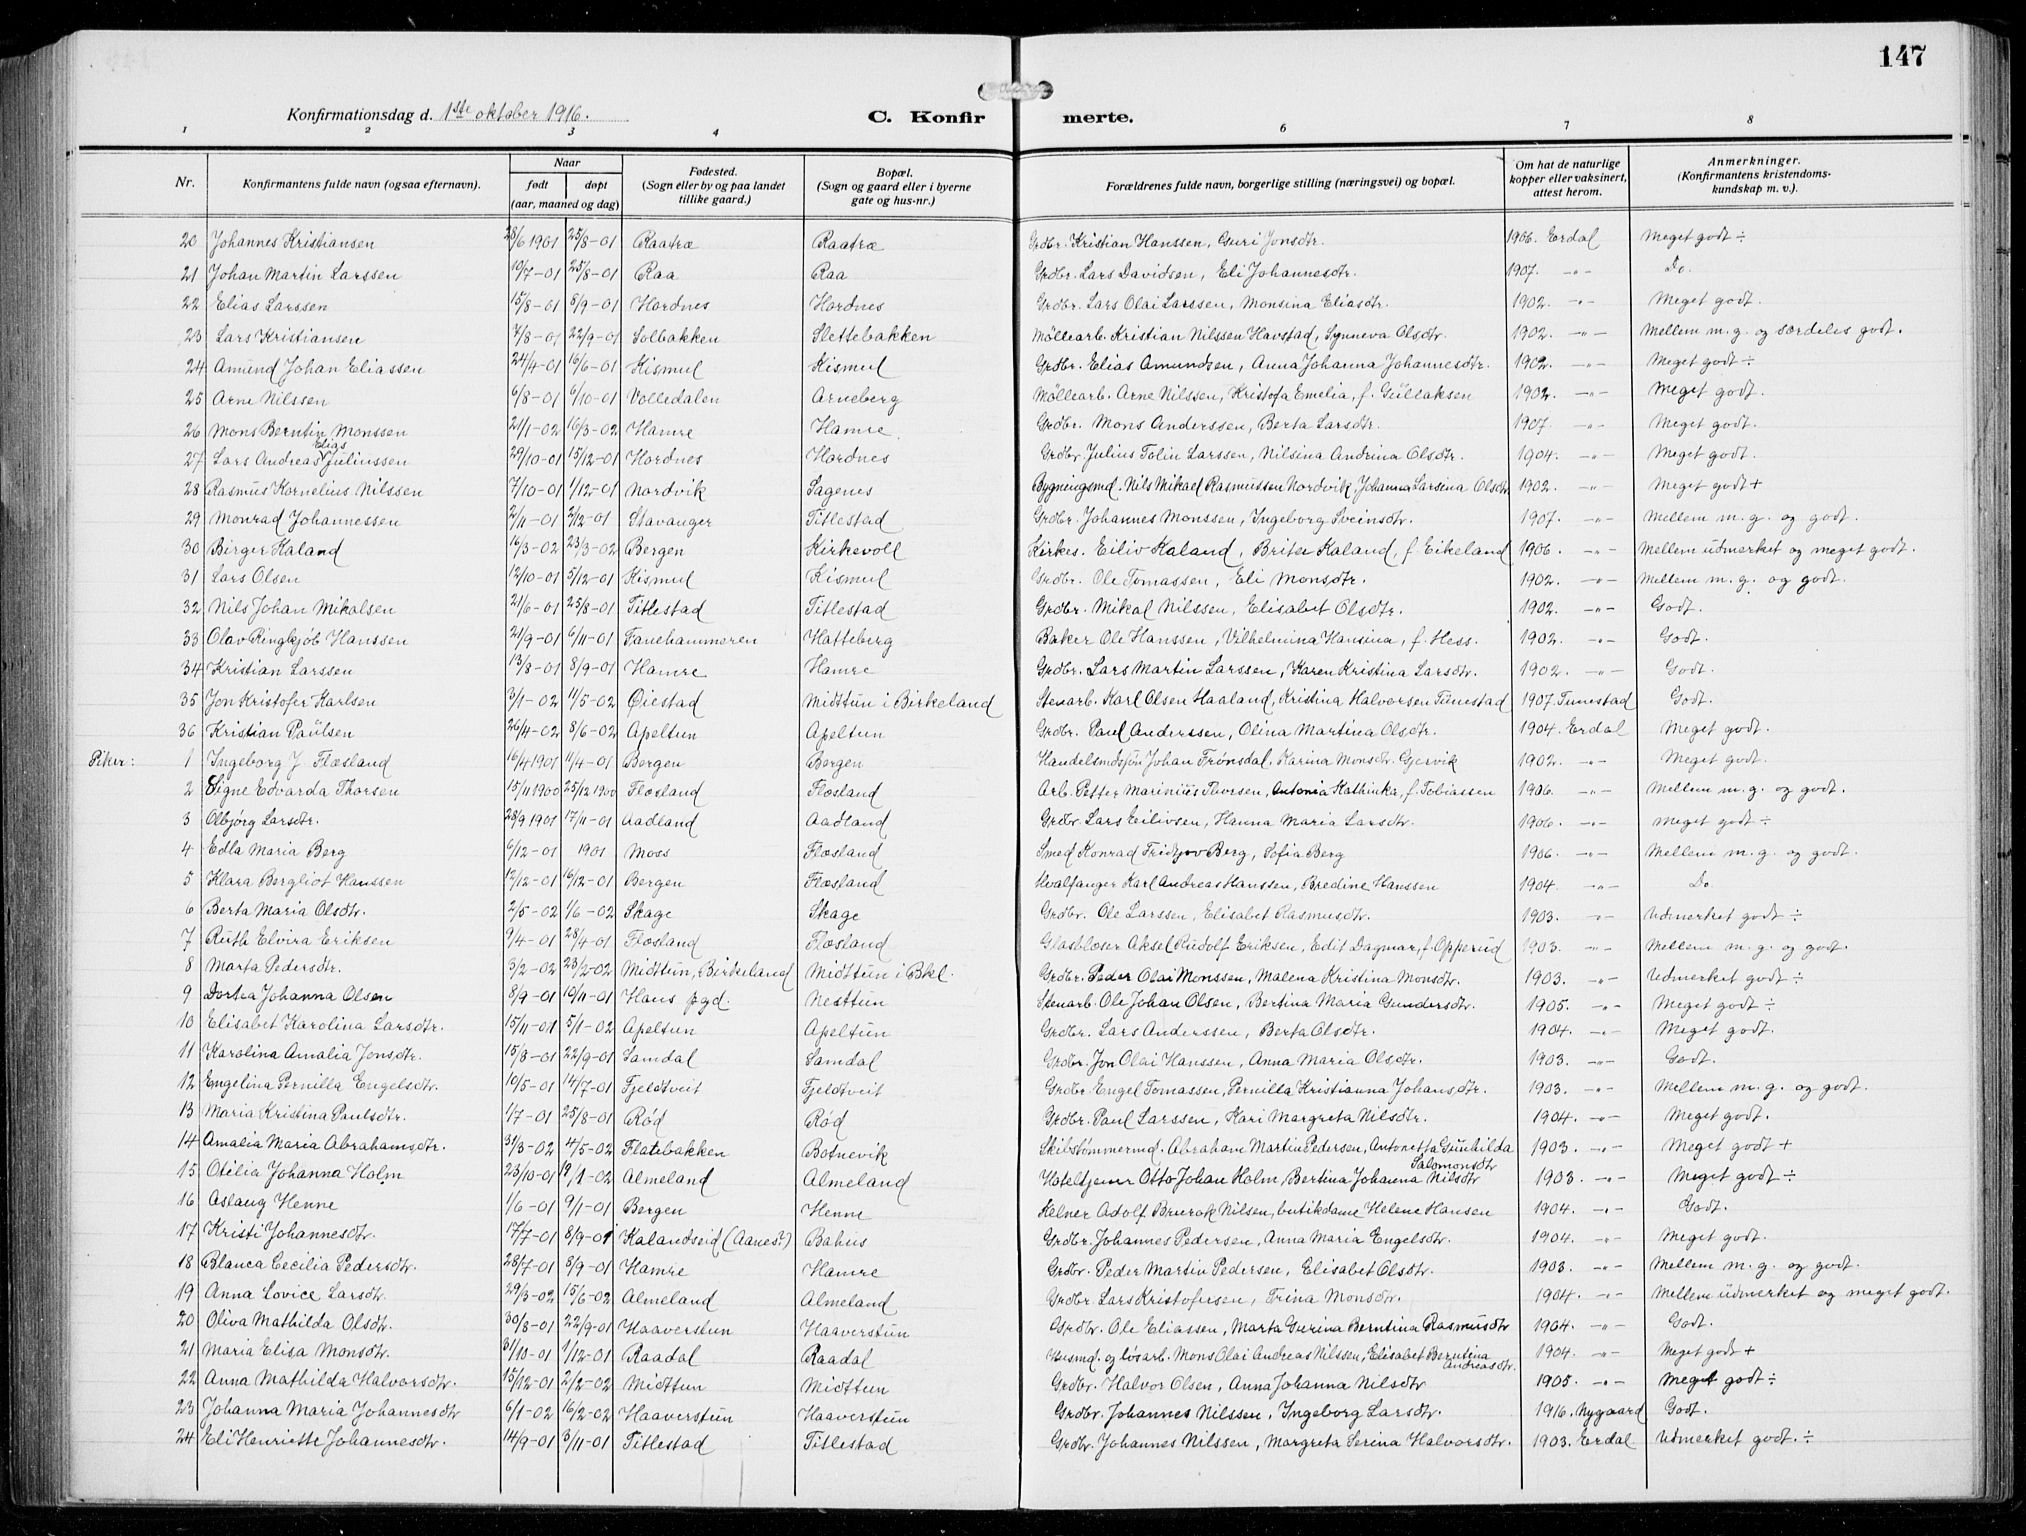 147
Konfirmationsdag d. 1ste oktober 1916.
C. Konfir merte.
1 2 3 4 6 7 8
Nr. Konfirmantens fulde navn (ogsaa efternavn). Naar født døpt (aar, maaned og dag) Fødested. (Sogn eller by og paa landet tillike gaard.) Bopæl. (Sogn og gaard eller i byerne gate og hus-nr.) Forældrenes fulde navn, borgerlige stilling (næringsvei) og bopæl. Om hat de naturlige kopper eller vaksinert, attest herom. Anmerkninger. (Konfirmantens kristendomskundskap m. v.).
20 Johannes Kristiansen 28/6 1901 25/8-01 Raatræ Raatræ Grdbr. Kristian Hanssen, Guri Jonsdtr. 1906. Erdal Meget godt ÷
21 Johan Martin Larssen 19/7-01 25/8-01 Raa Raa Grdbr. Lars Davidsen, Eli Johannesdtr. 1907. -"- Do.
22 Elias Larssen 15/8-01 8/9-01 Hordnes Hordnes Grdbr. Lars Olai Larssen, Monsina Eliasdtr. 1902. -"- Meget godt.
23 Lars Kristiansen 7/8-01 22/9-01 Solbakken Slettebakken Møllearb. Kristian Nilssen Havstad, Synneva Olsdtr. 1902. -"- Mellem m. g. og særdeles godt.
24 Amund Johan Eliassen 24/4-01 16/6-01 Kismul Kismul Grdbr. Elias Amundsen, Anna Johanna Johannesdtr. 1902. -"- Meget godt ÷
25 Arne Nilssen 6/8-01 6/10-01 Volledalen Arneberg Møllearb. Arne Nilssen, Kristofa Emelia, f. Gullaksen 1902. -"- Meget godt.
26 Mons Berntin Monssen 21/1-02 16/3-02 Hamre Hamre Grdbr. Mons Anderssen, Berta Larsdtr. 1907. -"- Meget godt.
27 Lars Andreas Elias Juliussen 29/10-01 15/12-01 Hordnes Hordnes Grdbr. Julius Tolin Larssen, Nilsina Andrina Olsdtr. 1904. -"- Meget godt.
28 Rasmus Kornelius Nilssen 7/10-01 1/12-01 Nordvik Sagenes Bygningsmd. Nils Mikael Rasmussen Nordvik, Johanna Larsina Olsdtr 1902. -"- Meget godt +
29 Monrad Johannessen 2/11-01 2/12-01 Stavanger Titlestad Grdbr. Johannes Monssen, Ingeborg Sveinsdtr. 1907. -"- Mellem m. g. og godt.
30 Birger Kaland 16/3-02 23/3-02 Bergen Kirkevoll Kirkes. Eiliv Kaland, Brite Kaland, f. Eikeland 1906. -"- Mellem udmerket og meget godt.
31 Lars Olsen 12/10-01 5/12-01 Kismul Kismul Grdbr. Ole Tomassen, Eli Monsdtr. 1902. -"- Mellem m. g. og godt.
32 Nils Johan Mikalsen 21/6-01 25/8-01 Titlestad Titlestad Grdbr. Mikal Nilssen, Elisabet Olsdtr. 1902. -"- Godt.
33 Olav Ringkjøb Hanssen 21/9-01 6/11-01 Fanehammeren Hatteberg Baker Ole Hanssen, Vilhelmina Hansina, f. Hess. 1902. -"- Godt.
34 Kristian Larssen 13/8-01 8/9-01 Hamre Hamre Grdbr. Lars Martin Larssen, Karen Kristina Larsdtr. 1902. -"- Godt.
35 Jon Kristofer Karlsen 3/1-02 11/5-02 Øiestad Midttun i Birkeland Stenarb. Karl Olsen Haaland, Kristina Halvorsen Tunestad 1907. Tunestad Godt.
36 Kristian Paulsen 26/4-02 8/6-02 Apeltun Apeltun Grdbr. Paul Anderssen, Olina Martina Olsdtr. 1904. Erdal Meget godt.
Piker: 1 Ingeborg J. Flæsland 16/4 1901 11/4-01 Bergen Bergen Handelsmdssøn Johan Trønsdal, Karina Monsdtr. Gjervik 1902. -"- Meget godt.
2 Signe Edvarda Thorsen 15/11 1900 25/12 1900 Flæsland Flæsland Arb. Petter Mariniüs Thorsen, Antonia Kathinka, f. Tobiassen 1906. -"- Mellem m. g. og godt.
3 Olbjørg Larsdtr. 28/9 1901 17/11-01 Aadland Aadland Grdbr. Lars Eilivsen, Hanna Maria Larsdtr. 1906. -"- Meget godt ÷
4 Edla Maria Berg 6/12-01 1901 Moss Flæsland Smed Konrad Fridtjov Berg, Sofia Berg 1906. -"- Mellem m. g. og godt.
5 Klara Bergliot Hanssen 12/12-01 16/12-01 Bergen Flæsland Hvalfanger Karl Andreas Hanssen, Bredine Hanssen 1904. -"- Do
6 Berta Maria Olsdtr. 2/5-02 1/6-02 Skage Skage Grdbr. Ole Larssen, Elisabet Rasmusdtr. 1903. -"- Udmerket godt ÷
7 Ruth Elvira Eriksen 9/4-01 28/4-01 Flæsland Flæsland Glasblæser Aksel Rudolf Eriksen, Edit Dagmar, f. Opperud 1903. -"- Mellem m. g. og godt.
8 Marta Pedersdtr. 3/2-02 23/2-02 Midttun, Birkeland Midttun i Bkl. Grdbr. Peder Olai Monssen, Malena Kristina Monsdtr. 1903. -"- Udmerket godt ÷
9 Dortea Johanna Olsen 8/9-01 10/11-01 Haus pgd. Nesttun Stenarb. Ole Johan Olsen, Bertina Maria Gundersdtr. 1905. -"- Meget godt ÷
10 Elisabet Karolina Larsdtr. 15/11-01 5/1-02 Apeltun Apeltun Grdbr. Lars Anderssen, Berta Olsdtr. 1904. -"- Meget godt.
11 Karolina Amalia Jonsdtr. 15/8-01 22/9-01 Samdal Samdal Grdbr. Jon Olai Hanssen, Anna Maria Olsdtr. 1903. -"- Godt.
12 Engelina Pernilla Engelsdtr. 10/5-01 14/7-01 Fjeldtveit Fjeldtveit Grdbr. Engel Tomassen, Pernilla Kristianna Johansdtr. 1903. -"- Mellem m. g. og godt.
13 Maria Kristina Paulsdtr. 1/7-01 25/8-01 Rød Rød Grdbr. Paul Larssen, Kari Margreta Nilsdtr. 1904. -"- Meget godt.
14 Amalia Maria Abrahamsdtr. 31/3-02 4/5-02 Flatebakken Botnevik Skibstømmermd. Abraham Martin Pedersen, Antonetta Gunhilda Salomonsdtr 1903. -"- Meget godt +
15 Otilia Johanna Holm 23/10-01 19/1-02 Almeland Almeland Hoteltjener Otto Johan Holm, Bertina Johanna Nilsdtr 1903. -"- Meget godt ÷
16 Aslaug Henne 1/6-01 9/1-01 Bergen Henne Kelner Adolf Brurok Nilsen, butikdame Helene Hansen 1904. -"- Godt.
17 Kristi Johannesdtr. 17/7-01 8/9-01 Kalandseid (Aanes?) Bahus Grdbr. Johannes Pedersen, Anna Maria Engelsdtr. 1904. -"- Meget godt.
18 Blanca Cecilia Pedersdtr. 28/7-01 8/9-01 Hamre Hamre Grdbr. Peder Martin Pedersen, Elisabet Olsdtr. 1903. -"- Mellem m. g. og godt.
19 Anna Lovice Larsdtr. 29/3-02 15/6-02 Almeland Almeland Grdbr. Lars Kristofersen, Trina Monsdtr. 1904. -"- Mellem udmerket og meget godt.
20 Oliva Mathilda Olsdtr. 30/8-01 22/9-01 Haaverstun Haaverstun Grdbr. Ole Eliassen, Marta Gurina Berntina Rasmusdtr 1904. -"- Godt.
21 Maria Elisa Monsdtr. 31/10-01 1/12-01 Raadal Raadal Husmd. og løsarb. Mons Olai Andreas Nilssen, Elisabet Berntina Andreasdtr. 1904. -"- Meget godt +
22 Anna Mathilda Halvorsdtr. 15/12-01 2/2-02 Midttun Midttun Grdbr. Halvor Olsen, Anna Johanna Nilsdtr 1905. -"- Meget godt ÷
23 Johanna Maria Johannesdtr 6/1-02 16/2-02 Haaverstun Haaverstun Grdbr. Johannes Nilssen, Ingeborg Larsdtr. 1916. Nygaard Godt.
24 Eli Henriette Johannesdtr. 14/9-01 3/11-01 Titlestad Titlestad Grdbr. Johannes Nilssen, Margreta Serina Halvorsdtr. 1903. Erdal Udmerket godt. ÷